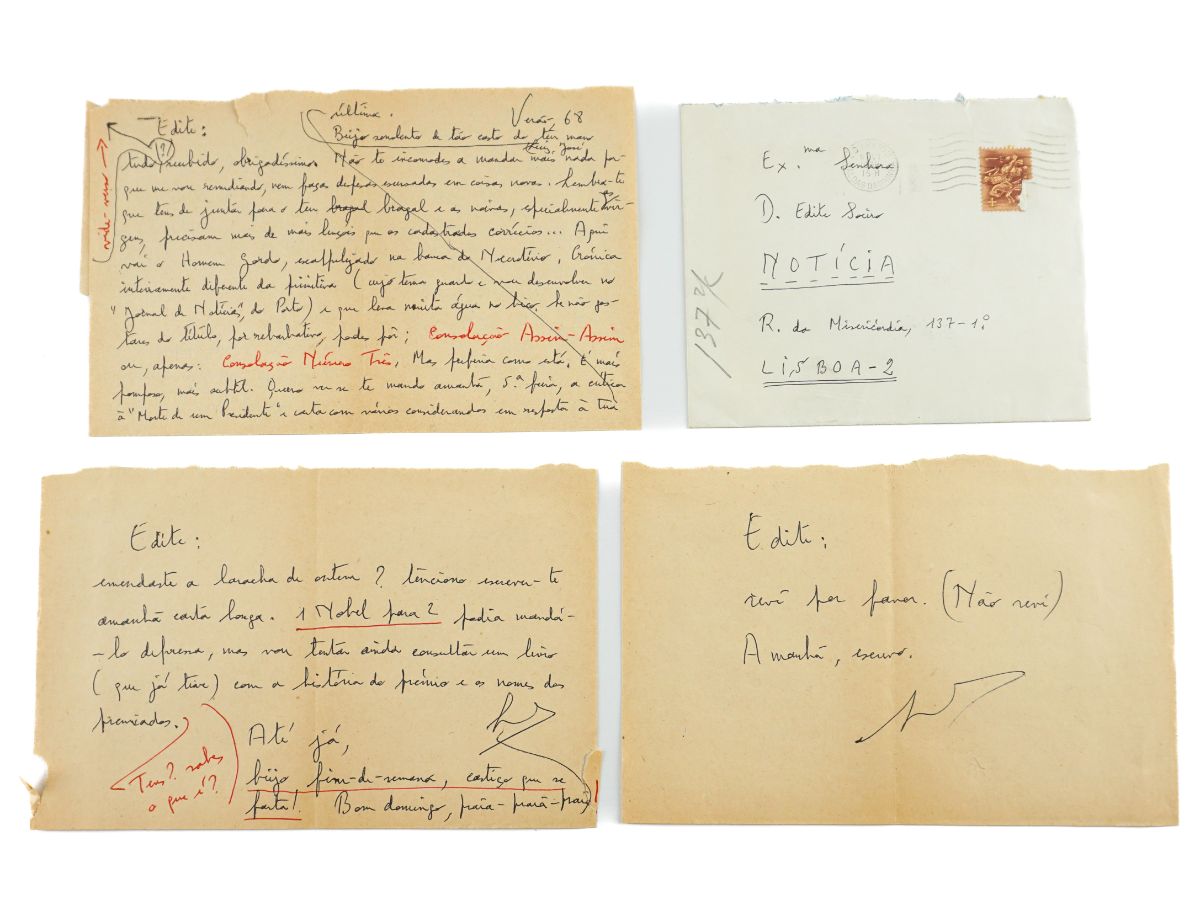 última.
Verão, 68
Edite:
Beijo sonolento & tão casto do teu mano
Luís José
(?)
tudo recebido, obrigadíssimo. Não te incomodes a mandar mais nada por-
que me vou remediando, nem faças despesas escusadas em coisas novas. Lembra-te
que tens de juntar para o teu bragal e as noivas, especialmente as vir-
gens, precisam mais de mais lençóis que os cadastrados corrécios... Aqui
vai o Homem Gordo, escalpelizado na banca do Necrotério, Crónica
inteiramente diferente da primitiva (cujo tema guardo e vou desenvolver no
"Jornal de Notícias", do Porto) e que leva muita água no bico. Se não gos-
tares do título, por rebarbativo, podes pôr: Consolação Assim-Assim
ou, apenas: Consolação Número Três. Mas preferia como está. É mais
pomposo, mais subtil. Quero ver se te mando amanhã, 5.ª feira, a crítica
à "Morte de um Presidente" e carta com vários considerandos em resposta à tua
vide-verso
Ex.ma Senhora
D. Edite Soeiro
NOTÍCIA
R. da Misericórdia, 137-1º
LISBOA-2
137
Edite:
emendaste a laracha de ontem? Tenciono escrever-te
amanhã carta longa. 1 Nobel para 2 podia mandá-
-lo depressa, mas vou tentar ainda consultar um livro
(que já tive) com a história do prémio e os nomes dos
premiados.
Tens? sabes
o que é?
Até já,
beijo fim-de-semana, castiço que se
farta! Bom domingo, praia-praia-praia!
Edite:
revê por favor. (Não revi)
Amanhã, escrevo.